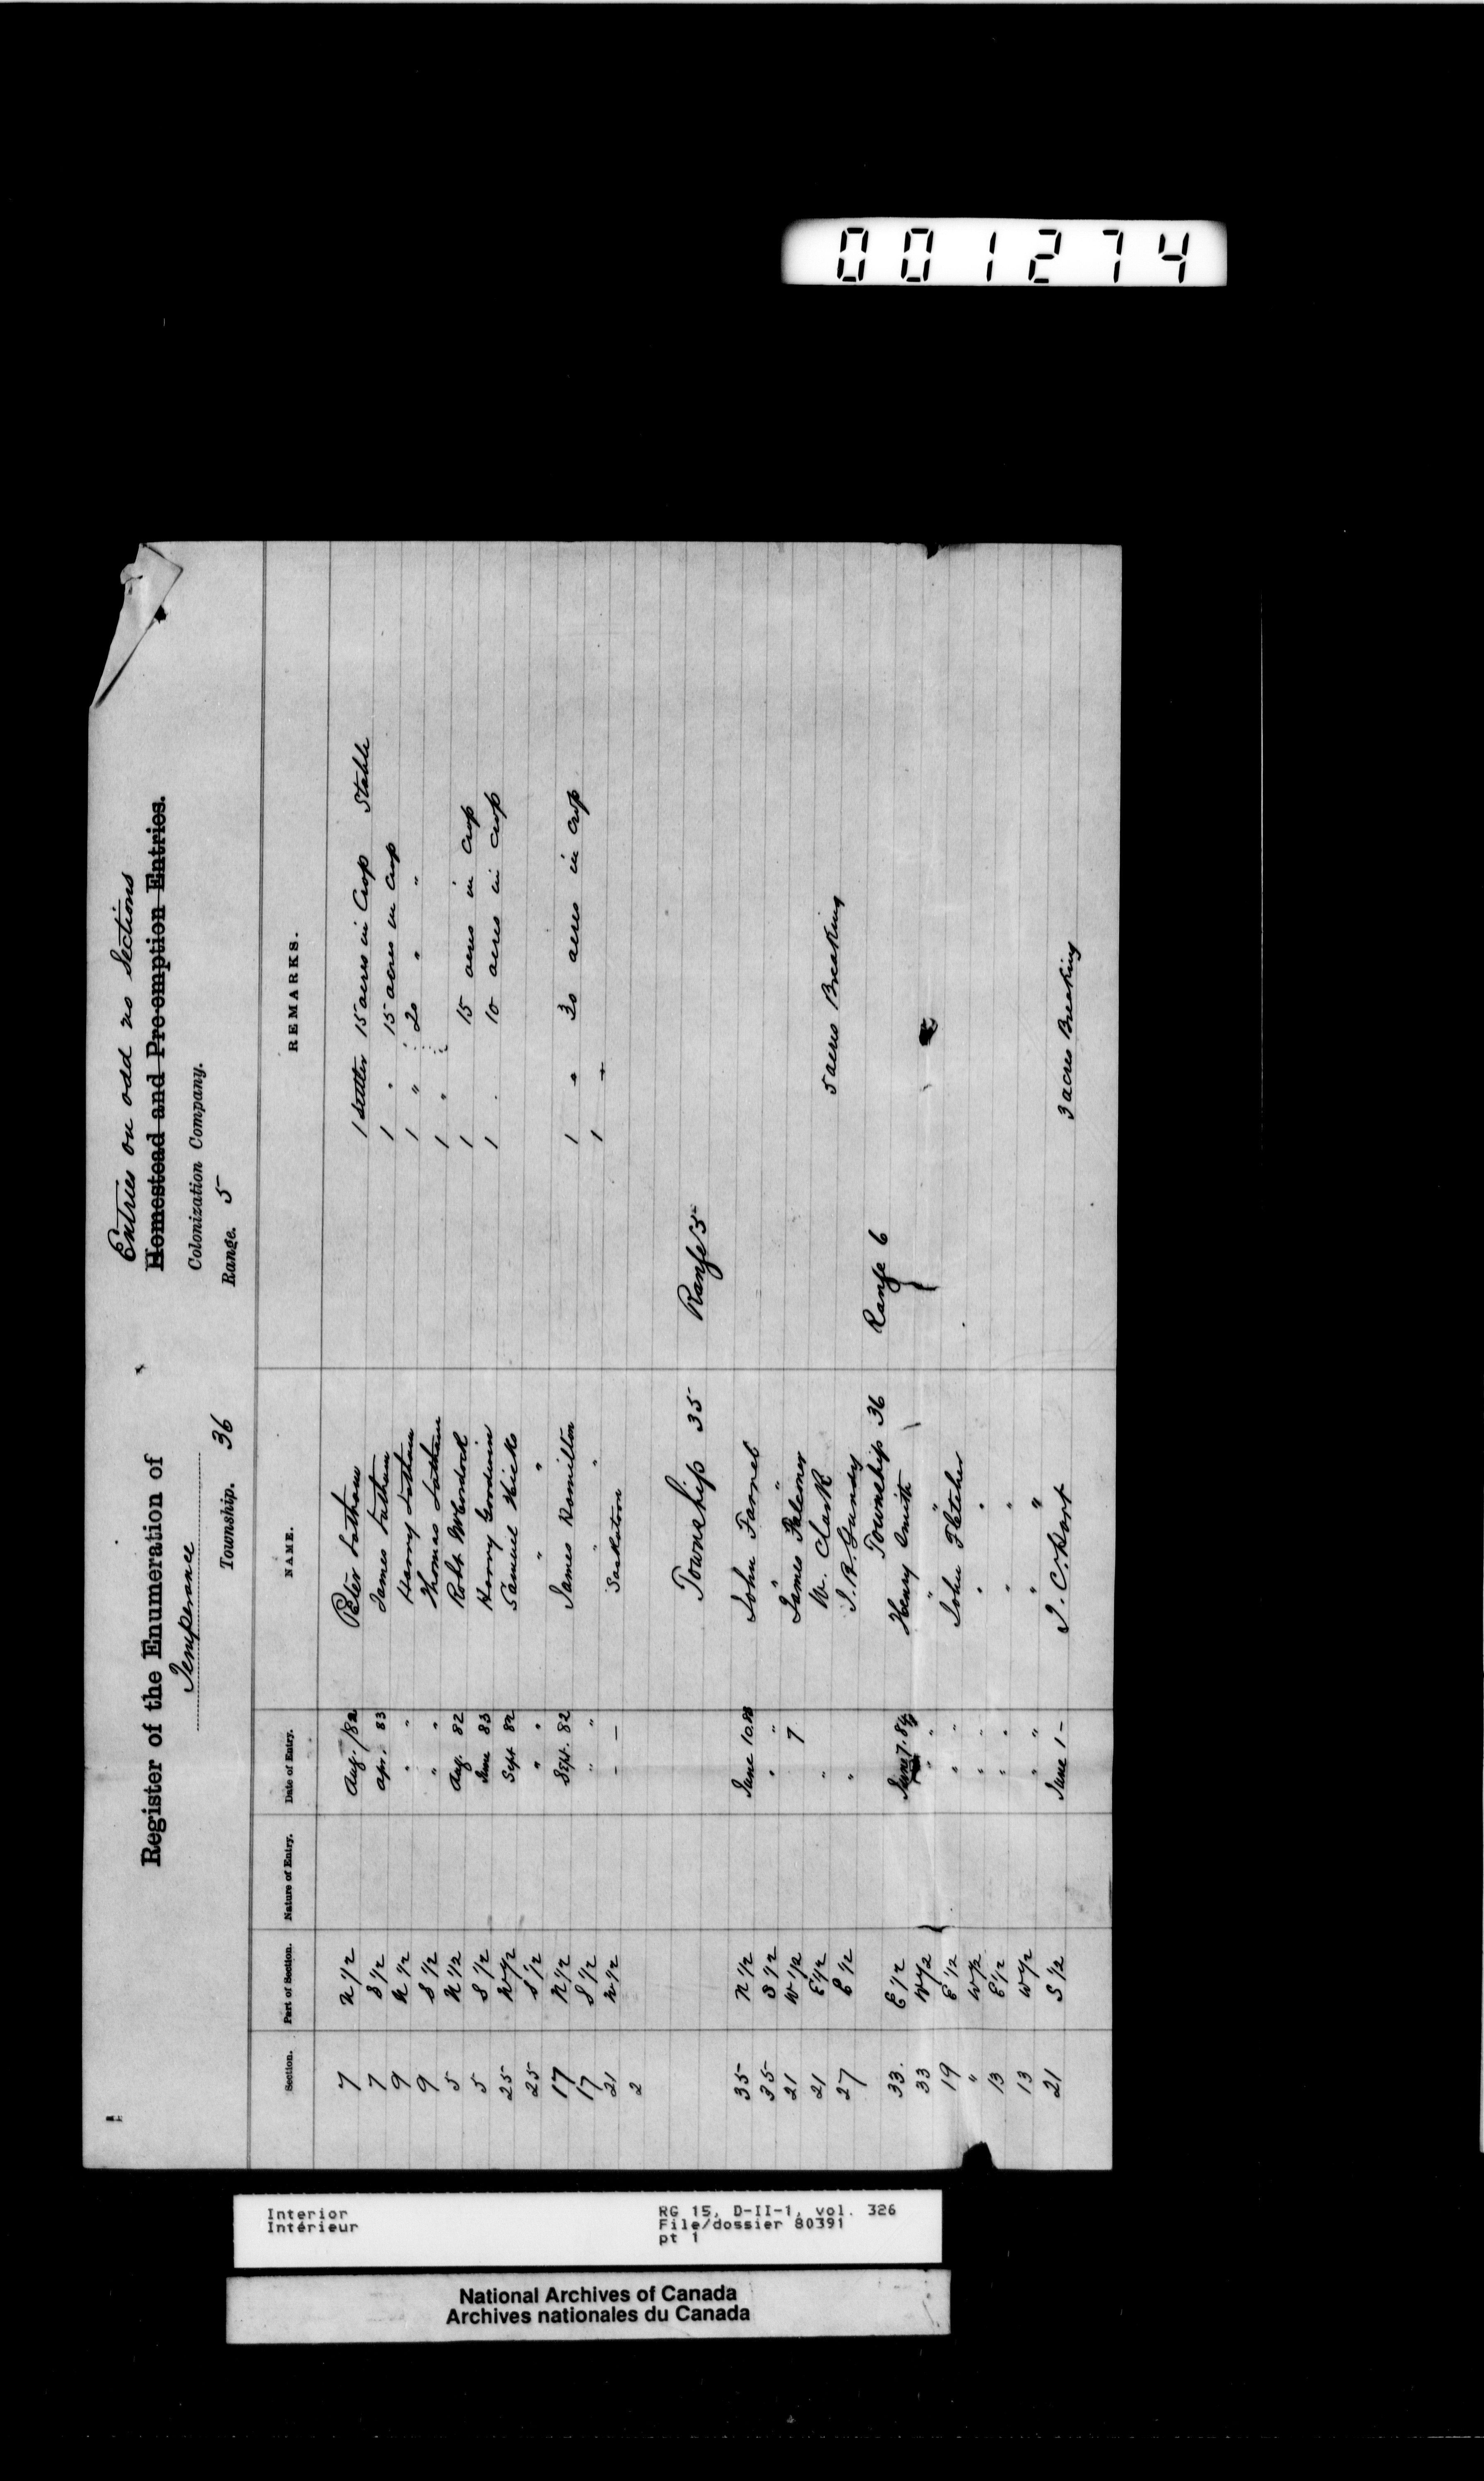 001274
Register of the Enumeration of Entries on odd no Sections
Homestead and Pre-emption Entries.
Temperance Colonization Company.
Township. 36 Range. 5
Section. Part of Section. Nature of Entry. Date of Entry. NAME. REMARKS.
7 N 1/2 Aug. /82 Peter Latham 1 Settler 15 acres in Crop Stable
7 S 1/2 Apr. 83 James Latham 1 " 15 acres in Crop
9 N 1/2 " " Harry Latham 1 " 20 " "
9 S 1/2 " " Thomas Latham 1 "
5 N 1/2 Aug. 82 Robt McCordock 1 15 acres in Crop
5 S 1/2 June 83 Harry Goodwin 1 " 10 acres in crop
25 N 1/2 Sept 82 Samuel Hicks
25 S 1/2 " " " "
17 N 1/2 Sept. 82 James Hamilton 1 " 30 acres in crop
17 S 1/2 " " " " 1 "
21 N 1/2 — — Saskatoon
2
Township 35 Range 5
35 N 1/2 June 10. John Farrel
35 S 1/2 " " " "
21 W 1/2 7 James Falconer
21 E 1/2 " W. Clark
27 E 1/2 " J. R. Gundy 5 acres Breaking
Township 36 Range 6
33. E 1/2 June 7. 84 Henry Smith
33 W 1/2 " " " "
19 E 1/2 " " John Fletcher
" W 1/2 " " " "
13 E 1/2 " " " "
13 W 1/2 " " " "
21 S 1/2 June 1 – J. C. Hart 3 acres Breaking
Interior RG 15, D-II-1, vol. 326
Intérieur File/dossier 80391
pt 1
National Archives of Canada
Archives nationales du Canada